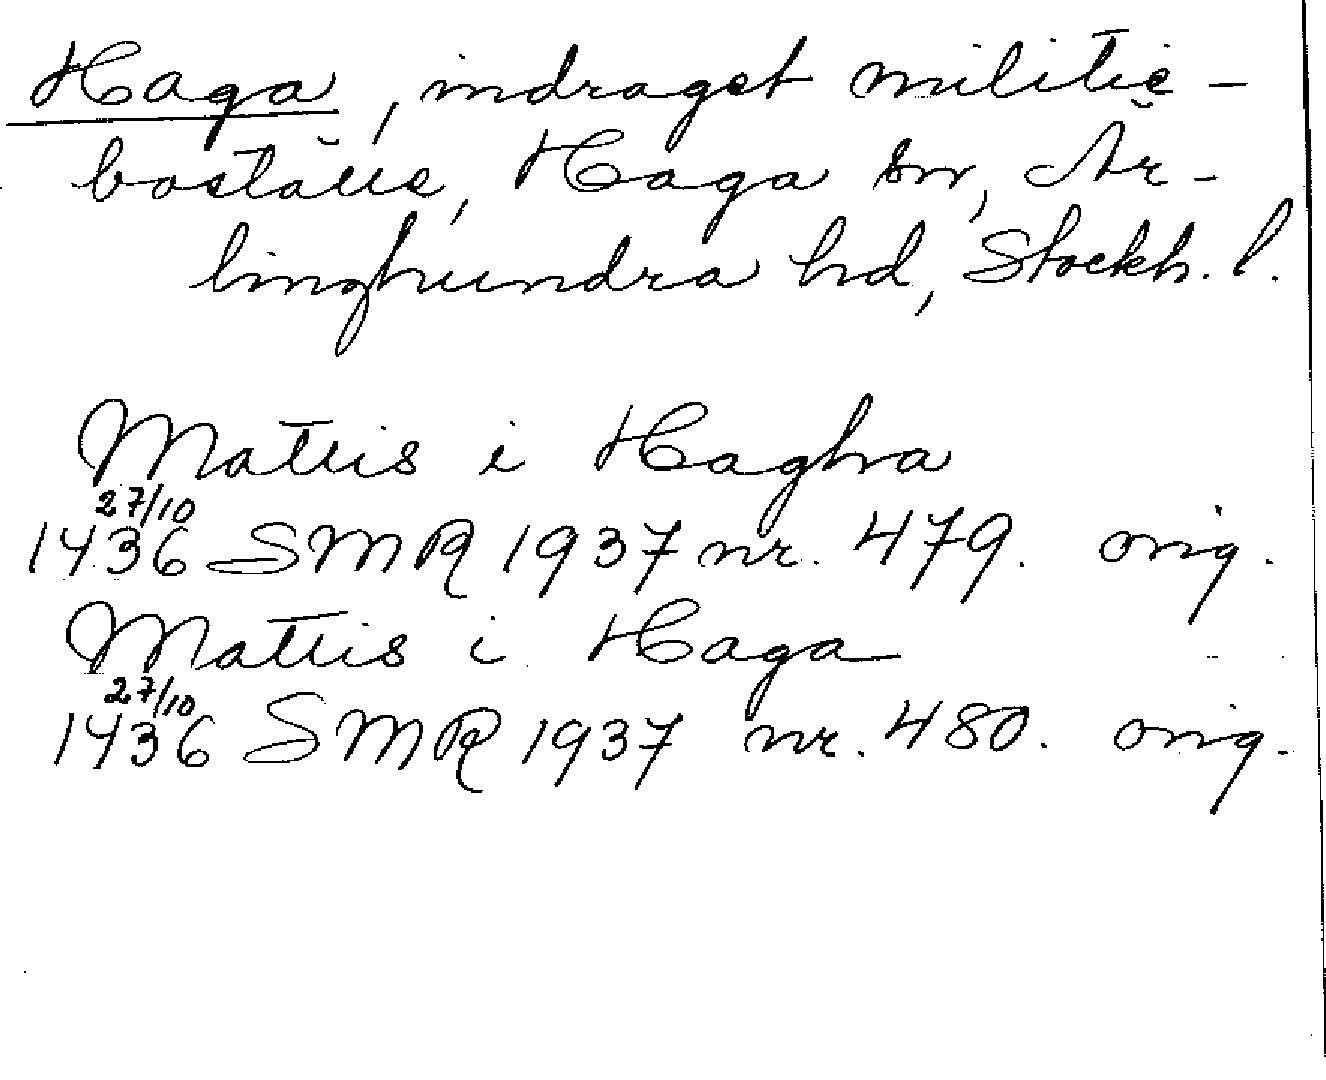 Haga, indraget militie-
boställe, Haga sn, Är-
linghundra hd, Stockh. l.
Mattis i Hagha
27/10
1436 SMR 1937 nr. 479. orig.
Mattis i Haga
27/10
1436 SMR 1937 nr. 480. orig.